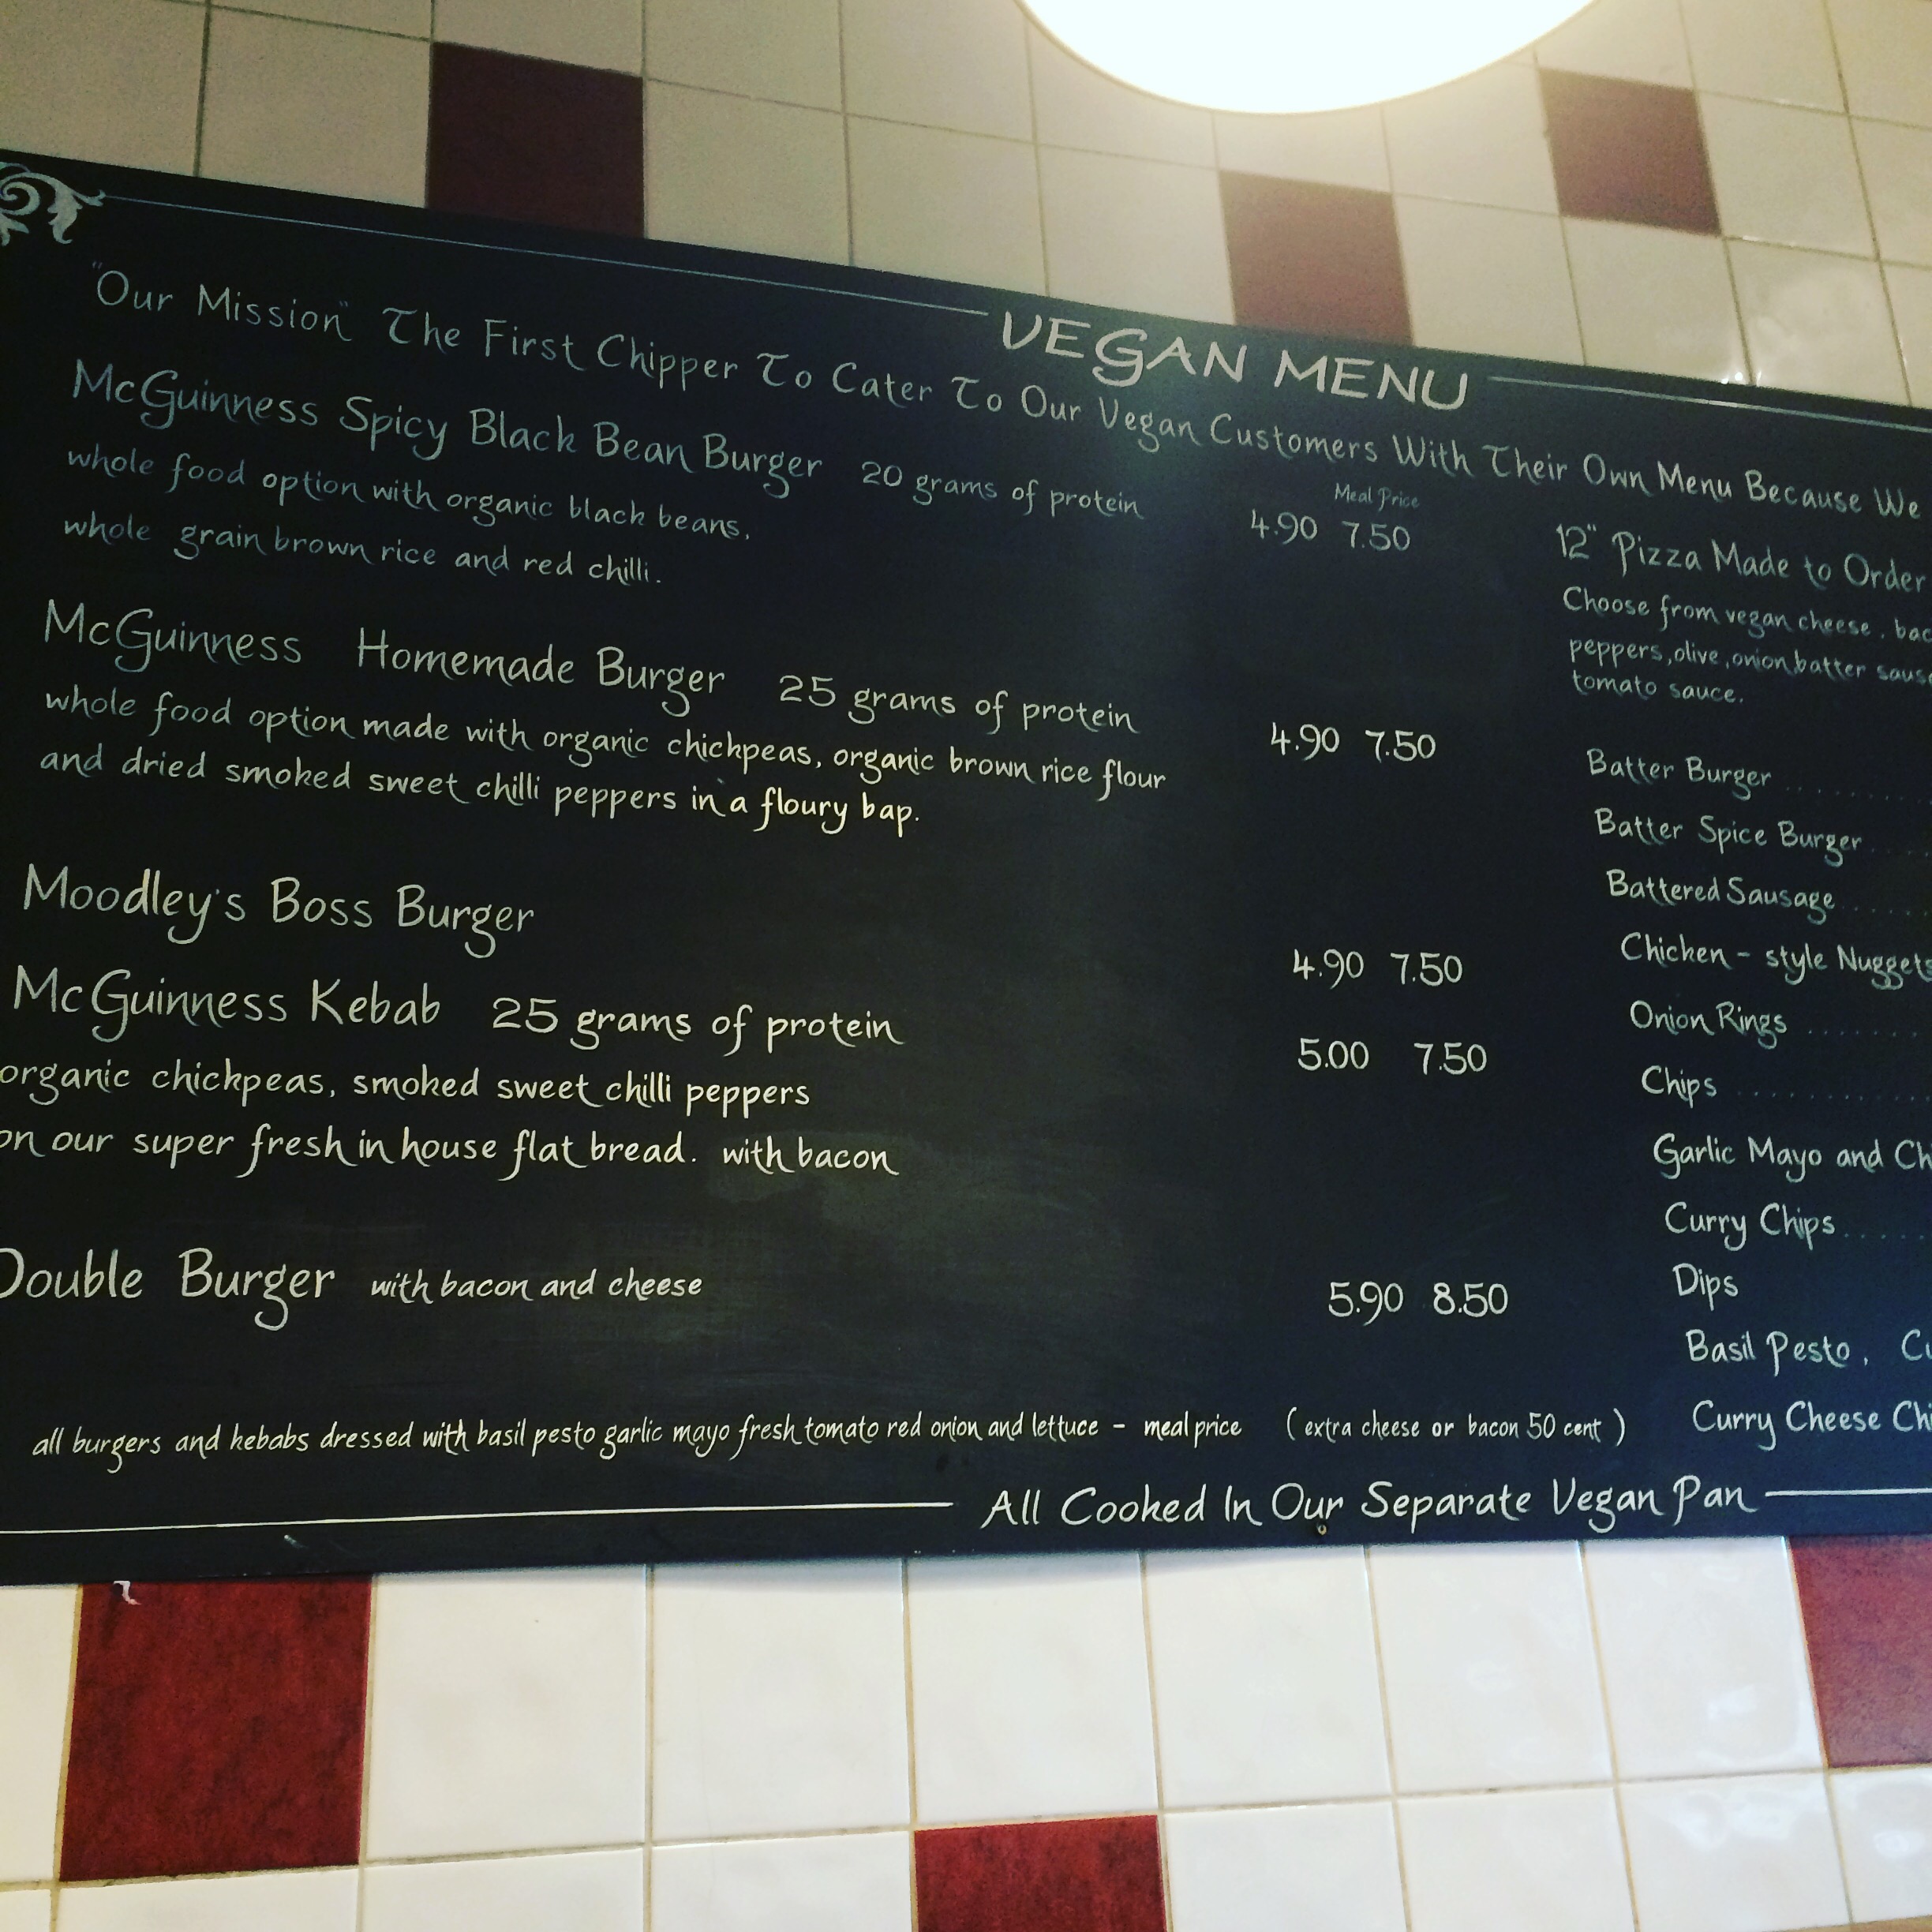 VEGAN MENU
"Our Mission" The First Chipper To Cater To Our Vegan Customers With Their Own Menu Because We
McGuinness Spicy Black Bean Burger 20 grams of protein
whole food option with organic black beans,
whole grain brown rice and red chilli.
Meal Price
4.90 7.50
McGuinness Homemade Burger 25 grams of protein
4.90 7.50
whole food option made with organic chickpeas, organic brown rice flour
and dried smoked sweet chilli peppers in a floury bap.
Moodley's Boss Burger
4.90 7.50
McGuinness Kebab 25 grams of protein
5.00 7.50
organic chickpeas, smoked sweet chilli peppers
on our super fresh in house flat bread. with bacon
Double Burger with bacon and cheese
5.90 8.50
all burgers and kebabs dressed with basil pesto garlic mayo fresh tomato red onion and lettuce - meal price (extra cheese or bacon 50 cent)
12" Pizza Made to Order
Choose from vegan cheese, bac
peppers, olive, onion, batter saus
tomato sauce.
Batter Burger
Batter Spice Burger
Battered Sausage
Chicken - style Nuggets
Onion Rings
Chips
Garlic Mayo and Ch
Curry Chips
Dips
Basil Pesto, Cu
Curry Cheese Chi
All Cooked In Our Separate Vegan Pan